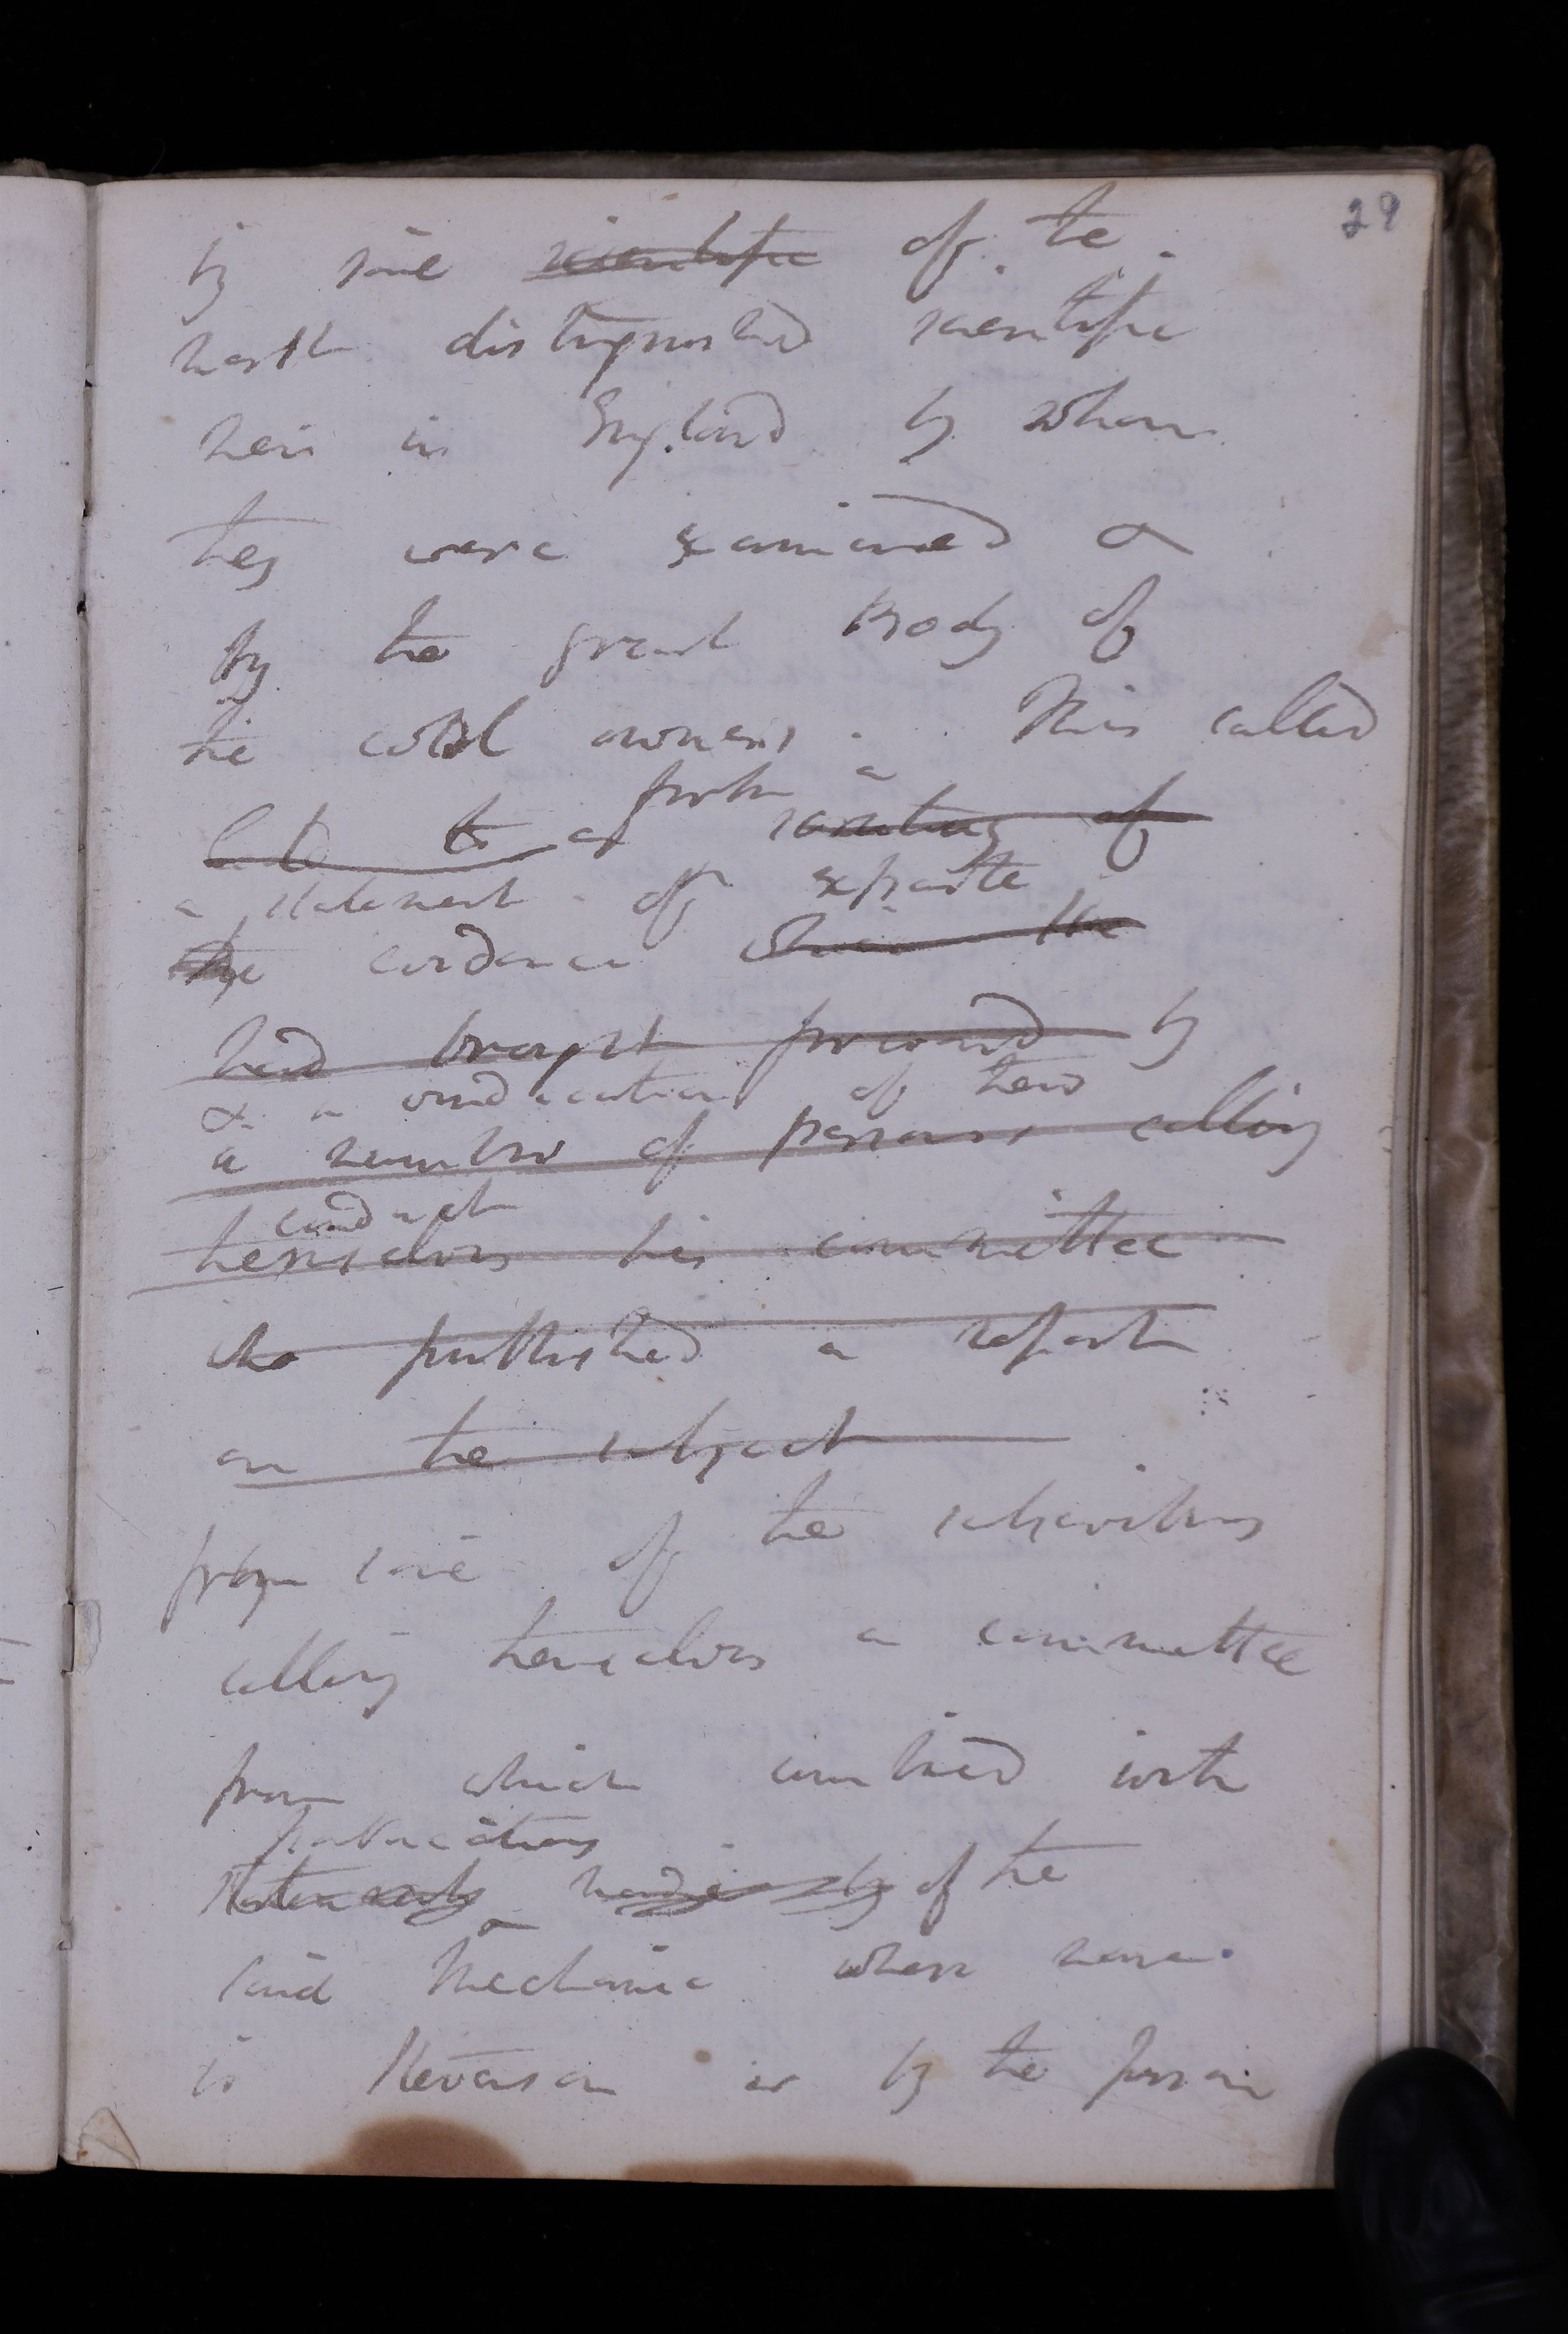 29
by some scientific of the
most distinguished scientific
men in England by whom
they were examined &
by the great Body of
the coal owners. This called
forth a
led to a scrutiny of
a statement of exparte
the evidence
had brought forward by
& a vindication of their
a number of persons calling
conduct
themselves his committee
who published a report
on the subject
from some of the subscribers
calling themselves a committee
from which combined with
publications
of the
said Mechanic whose name
is Stevenson or by the person